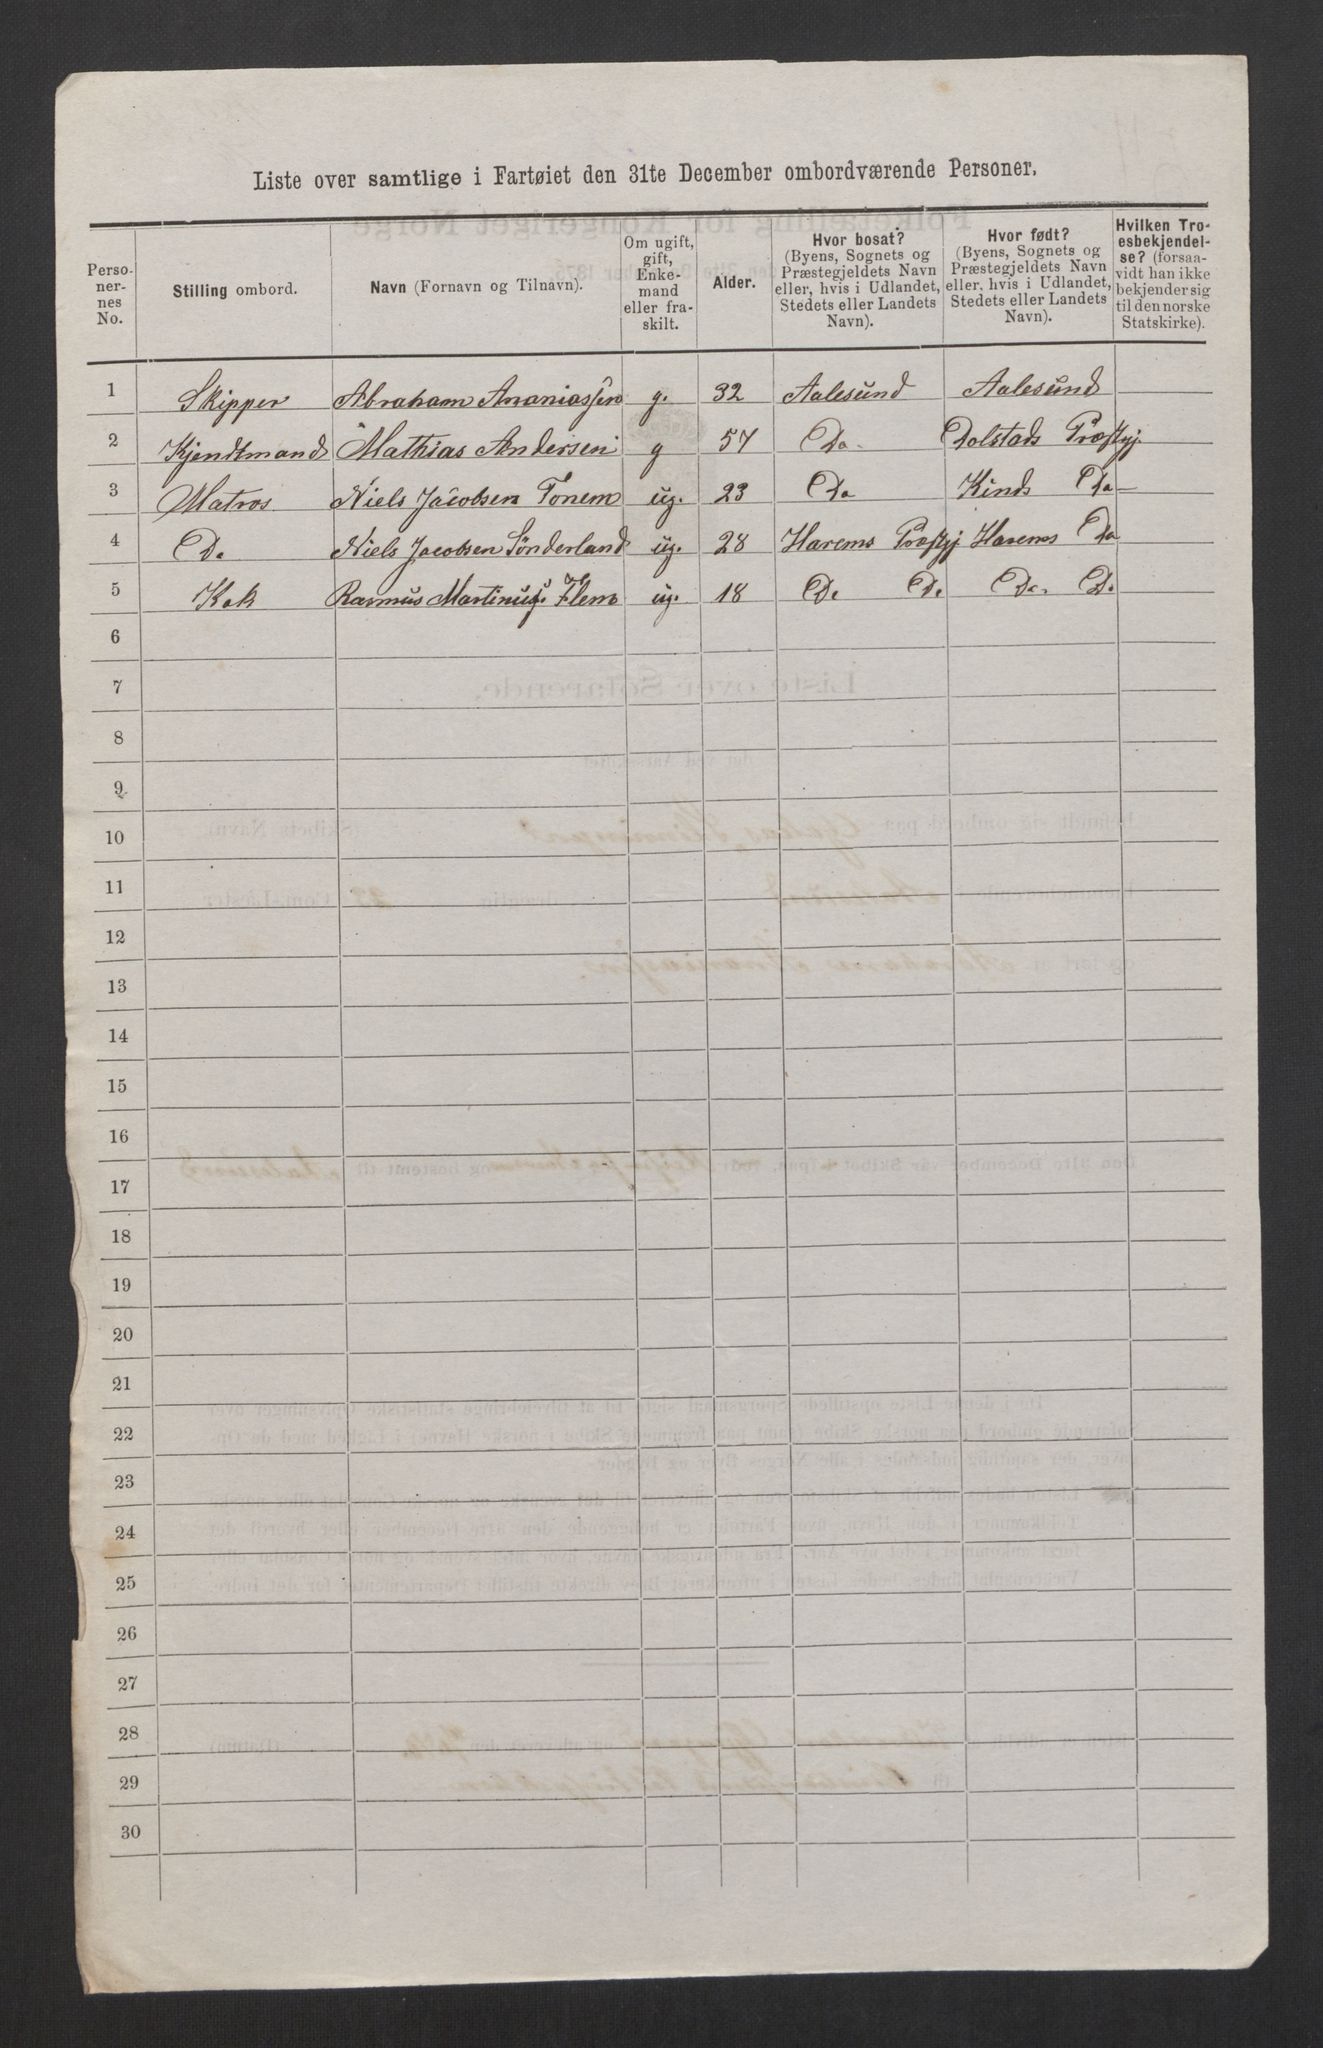 Liste over samtlige i Fartøiet den 31te December ombordværende Personer.
Personernes No.
Stilling ombord.
Navn (Fornavn og Tilnavn).
Om ugift, gift, Enkemand eller fraskilt.
Alder.
Hvor bosat? (Byens, Sognets og Præstegjeldets Navn eller, hvis i Udlandet, Stedets eller Landets Navn).
Hvor født? (Byens, Sognets og Præstegjeldets Navn eller, hvis i Udlandet, Stedets eller Landets Navn).
Hvilken Troesbekjendelse? (forsaavidt han ikke bekjender sig til den norske Statskirke).
1 Skipper Abraham Ananiassen g. 32 Aalesund Aalesund
2 Kjendtmand Mathias Andersen g 57 Do Dolstads Præstgj
3 Matros Niels Jacobsen Tonem ug. 23 Do Kinds Do
4 Do Niels Jacobsen Sønderland ug. 28 Harems Præstgj Harems Do
5 Kok Rasmus Martinus Flem ug. 18 Do Do Do Do
6
7
8
9
10
11
12
13
14
15
16
17
18
19
20
21
22
23
24
25
26
27
28
29
30